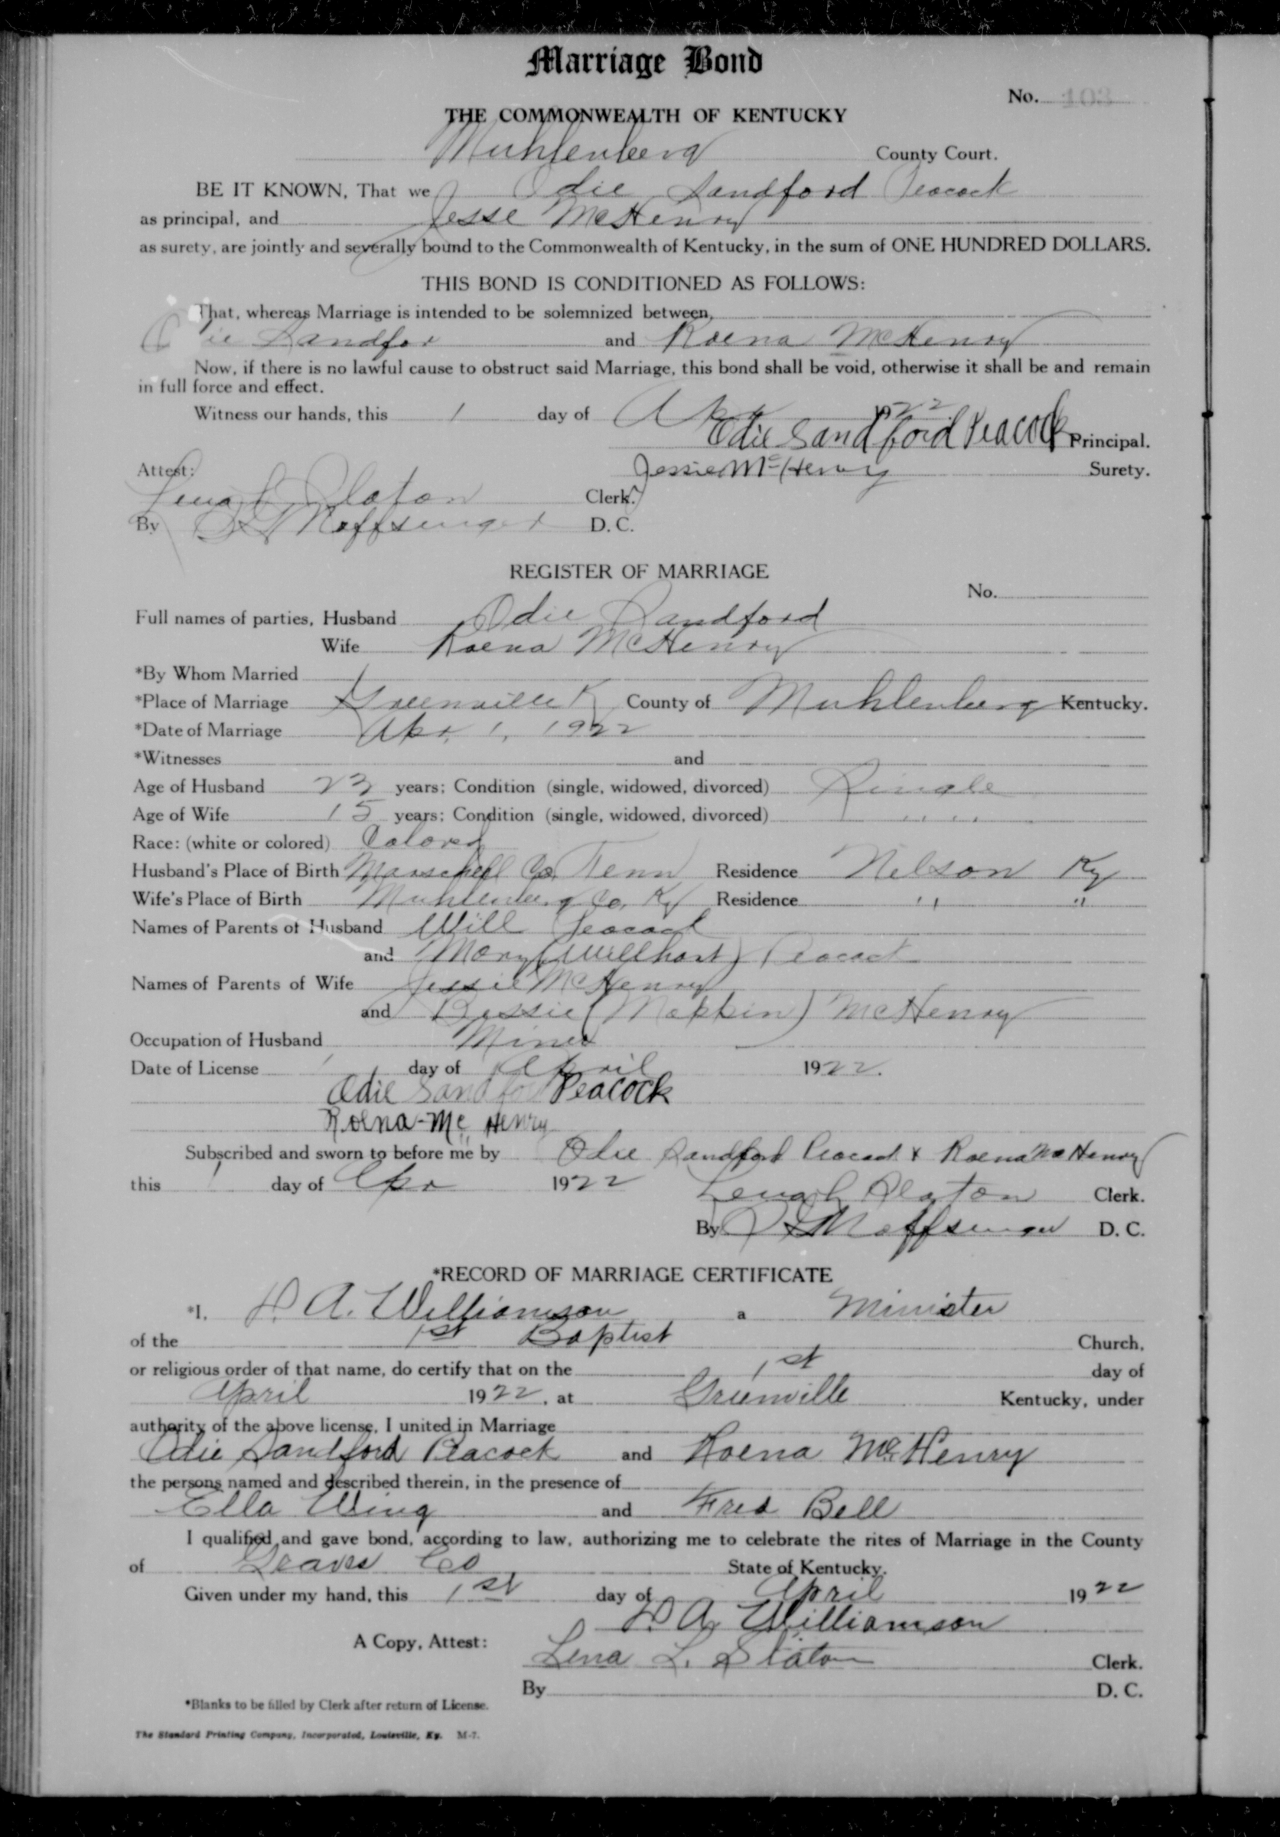 Marriage Bond
No. 103
THE COMMONWEALTH OF KENTUCKY
Muhlenberg County Court.
BE IT KNOWN, That we Odie Sandford Peacock
as principal, and Jesse McHenry
as surety, are jointly and severally bound to the Commonwealth of Kentucky, in the sum of ONE HUNDRED DOLLARS.
THIS BOND IS CONDITIONED AS FOLLOWS:
That, whereas Marriage is intended to be solemnized between,
Odie Sandfor and Roena McHenry
Now, if there is no lawful cause to obstruct said Marriage, this bond shall be void, otherwise it shall be and remain
in full force and effect.
Witness our hands, this 1 day of Apr 1922
Odie Sandford Peacock Principal.
Attest: Jessie McHenry Surety.
Lena L. Slaton Clerk.
By Noffsinger D. C.
REGISTER OF MARRIAGE
No.
Full names of parties, Husband Odie Sandford
Wife Roena McHenry
*By Whom Married
*Place of Marriage Greenville K County of Muhlenberg Kentucky.
*Date of Marriage Apr. 1, 1922
*Witnesses and
Age of Husband 23 years; Condition (single, widowed, divorced) Single
Age of Wife 15 years; Condition (single, widowed, divorced) " "
Race: (white or colored) Colored
Husband's Place of Birth Marschell Co, Tenn Residence Nelson Ky
Wife's Place of Birth Muhlenberg Co, Ky Residence " "
Names of Parents of Husband Will Peacock
and Mary ( ) Peacock
Names of Parents of Wife Jessie McHenry
and Bessie (Moppin) McHenry
Occupation of Husband Miner
Date of License 1 day of April 1922.
Odie Sandford Peacock
Roena Mc Henry
Subscribed and sworn to before me by Odie Sandford Peacock & Roena McHenry
this 1 day of Apr 1922 Lena L Slaton Clerk.
By Noffsinger D. C.
*RECORD OF MARRIAGE CERTIFICATE
*I, A. Williamson a Minister
of the 1st Baptist Church,
or religious order of that name, do certify that on the 1st day of
April 1922, at Greenville Kentucky, under
authority of the above license, I united in Marriage
Odie Sandford Peacock and Roena McHenry
the persons named and described therein, in the presence of
Ella Wing and Fred Bell
I qualified and gave bond, according to law, authorizing me to celebrate the rites of Marriage in the County
of Graves Co State of Kentucky.
Given under my hand, this 1st day of April 1922
A. Williamson
A Copy, Attest: Lena L. Slaton Clerk.
By D. C.
*Blanks to be filled by Clerk after return of License.
The Standard Printing Company, Incorporated, Louisville, Ky. M-7.